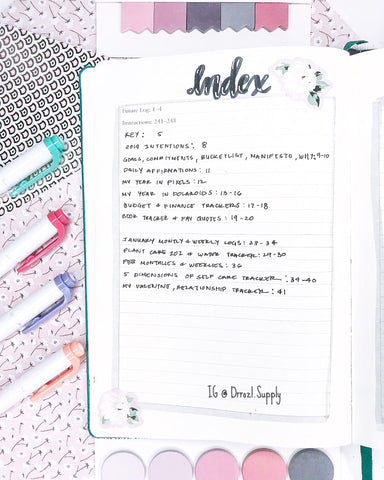 Index
Future Log: 1-4
Instructions: 241-248
KEY: 5
2019 INTENTIONS: 8
GOALS, COMMITMENTS, BUCKETLIST, MANIFESTO, WHY: 9-10
DAILY AFFIRMATIONS: 11
MY YEAR IN PIXELS: 12
MY YEAR IN POLAROIDS: 15-16
BUDGET & FINANCE TRACKERS: 17-18
BOOK TRACKER & FAV QUOTES: 19-20
JANUARY MONTLY & WEEKLY LOGS: 23-34
PLANT CARE 101 & WATER TRACKER: 29-30
FEB MONTHLIES & WEEKLIES: 36
5 DIMENSIONS OF SELF CARE TRACKER: 39-40
MY VALENTINE, RELATIONSHIP TRACKER: 41
IG @ Drrozl.Supply